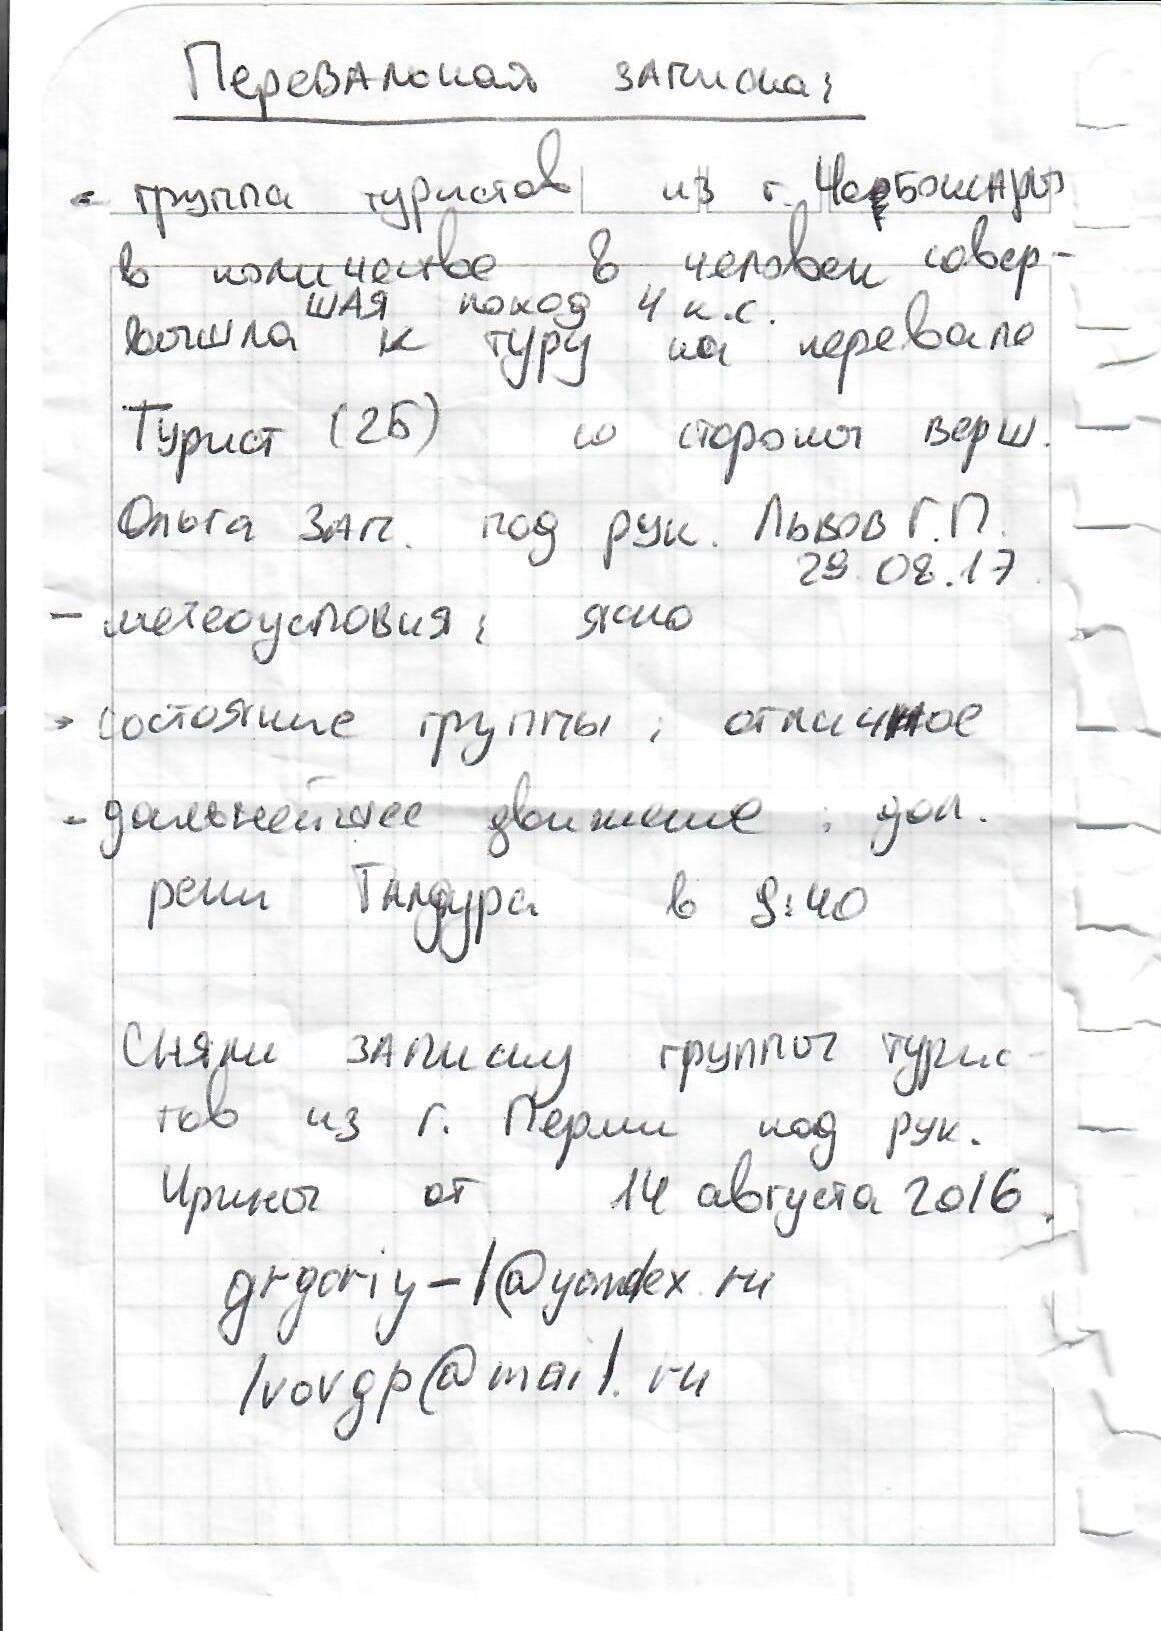 Перевальная записка:
- группа туристов из г. Чебоксары
в количестве 8 человек совер-
шая поход 4 к.с.
вышла к туру на перевале
Турист (2Б) со стороны верш.
Ольга зап. под рук. Львов Г.П.
29.08.17
- метеоусловия: ясно
- состояние группы: отличное
- дальнейшее движение: дол.
реки Талдура в 9:40
Сняли записку группы турис-
тов из г. Перми под рук.
Ирины от 14 августа 2016
grgoriy-1@yandex.ru
lvovgp@mail.ru